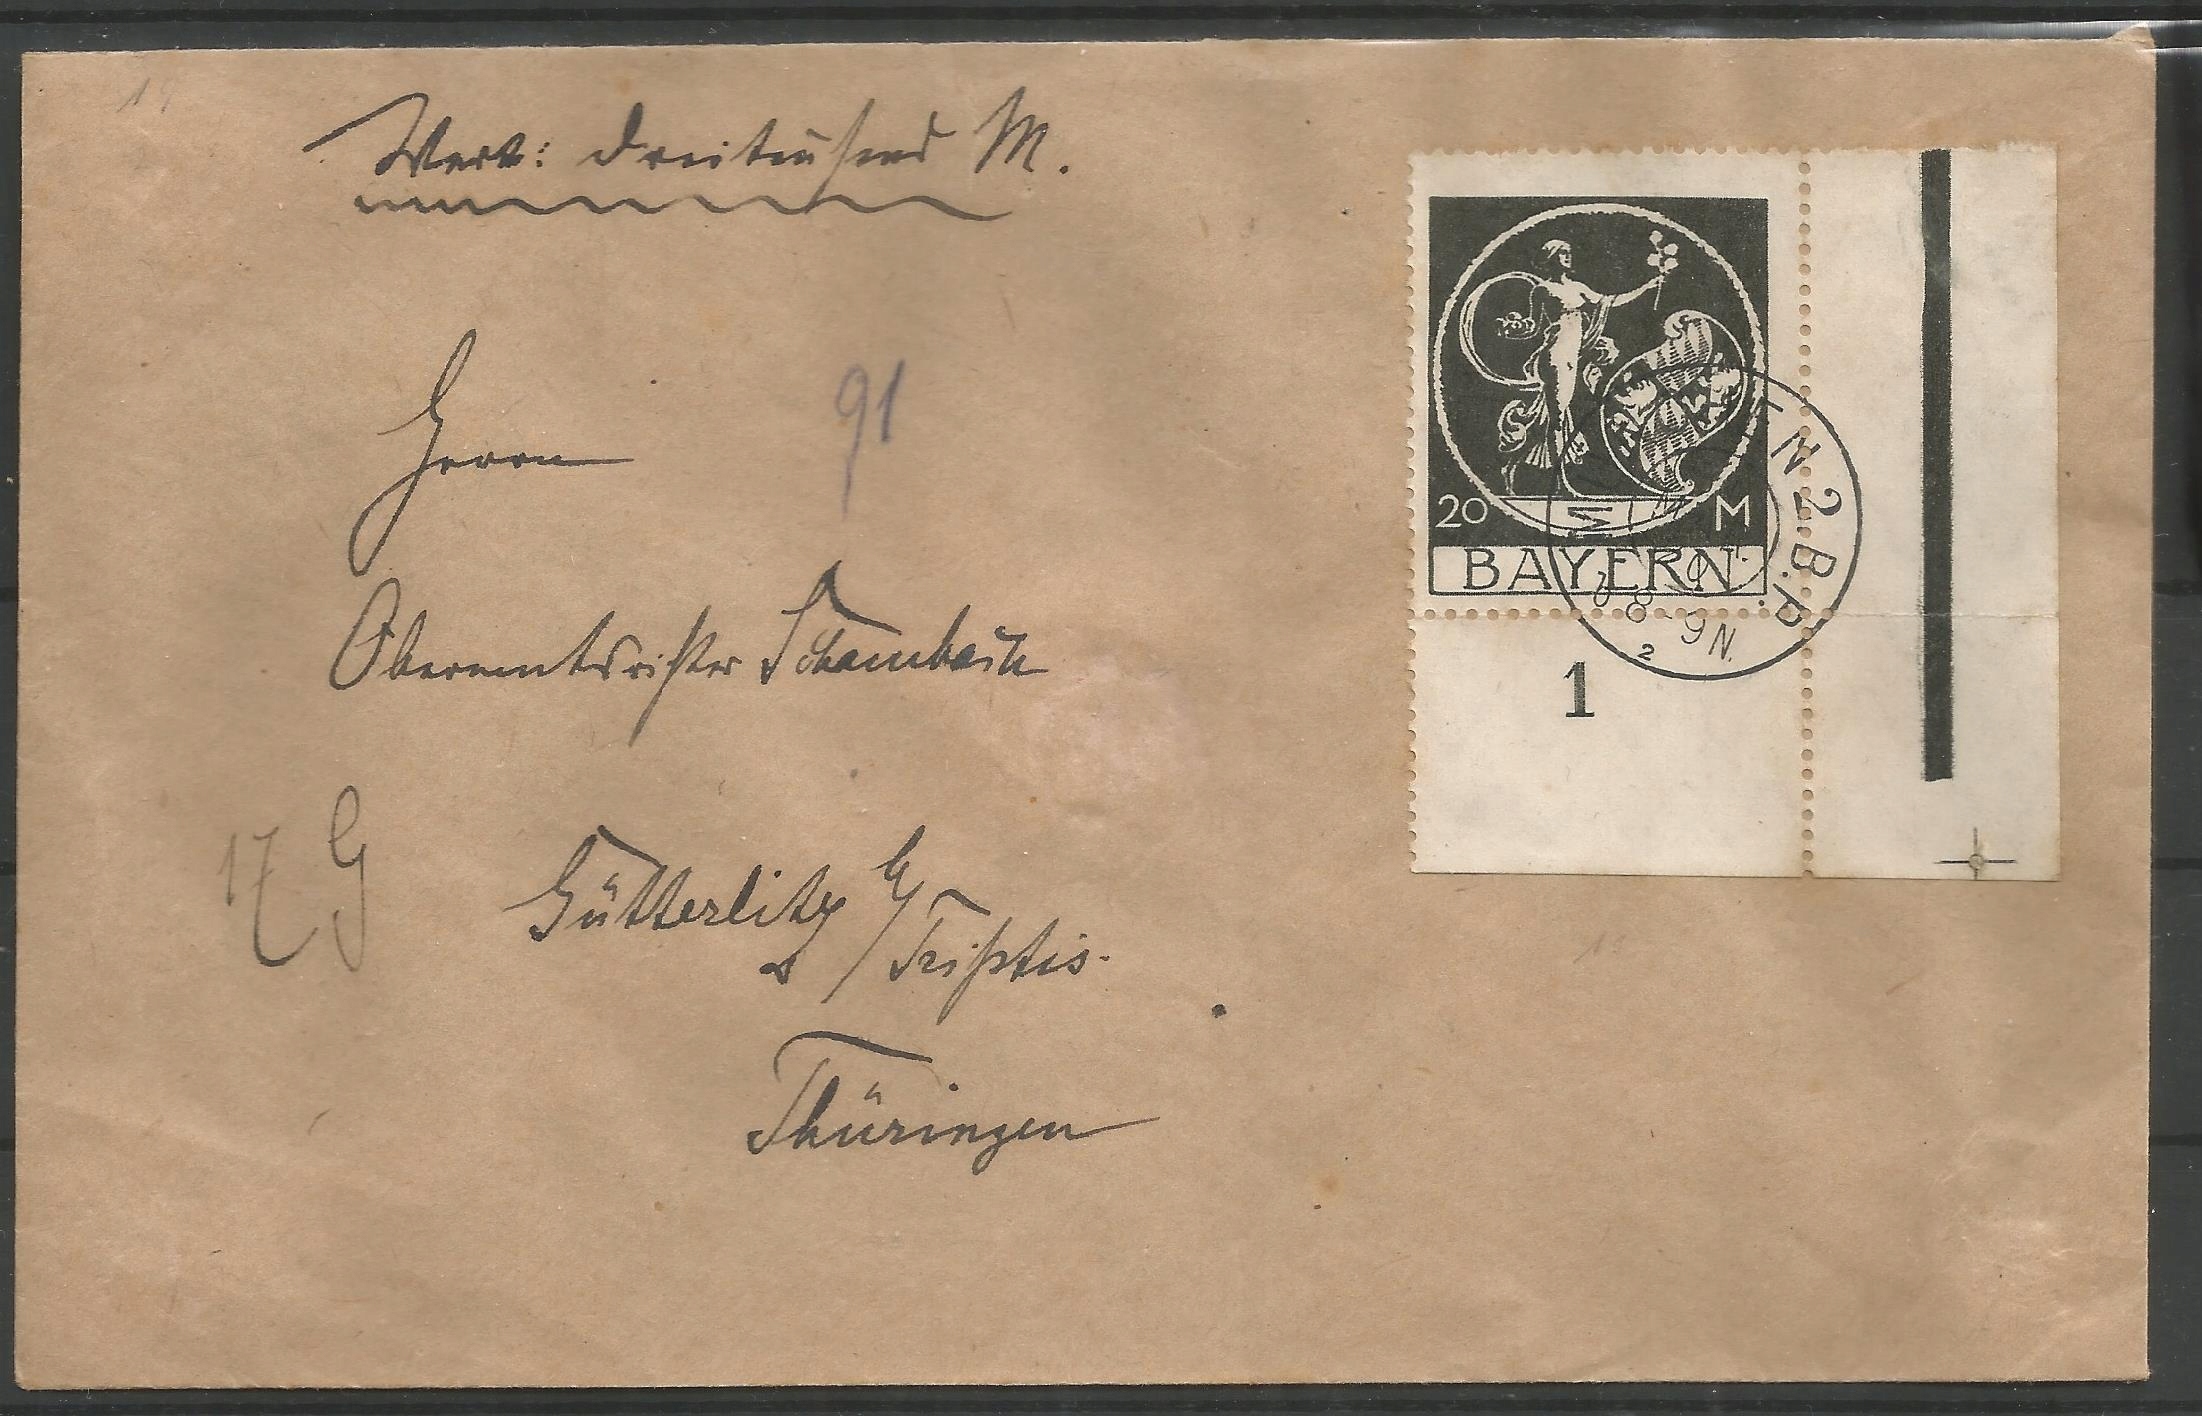 Wert: dreitausend M.
Herrn
91
Oberamtsrichter Schambach
17 G
Gütterlitz b/
Triptis.
Thüringen
20 M
BAYERN
EN 2 B.P.
8-9 N.
2
1